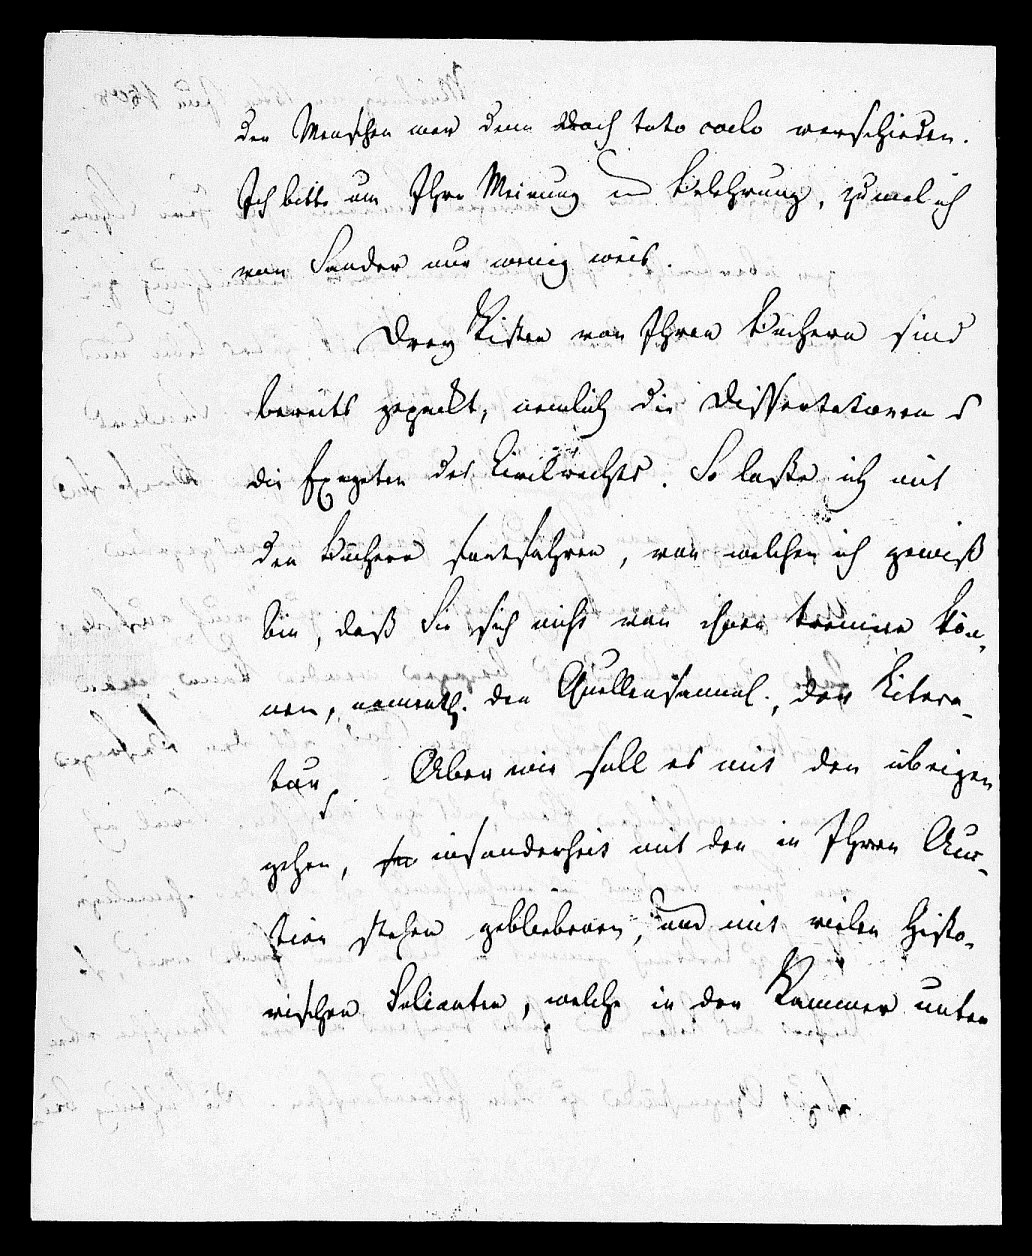 der Menschen war denn doch toto coelo verschieden.
Ich bitte um Ihre Meinung und Belehrung, zumal ich
von Sander nur wenig weis.
Drey Kisten von Ihren Büchern sind
bereits gepackt, nemlich die Dissertationen u
die Exegeten des Civilrechts. So lasse ich mit
den Büchern fortfahren, von welchen ich gewiß
bin, daß Sie sich nicht von ihnen trennen kön-
nen, namentl. den Quellensamml., der Litera-
tur. Aber wie soll es mit den übrigen
gehen, insonderheit mit den in Ihren Auc-
tion stehen gebliebenen, und mit vielen histo-
rischen Folianten, welche in der Kammer unter